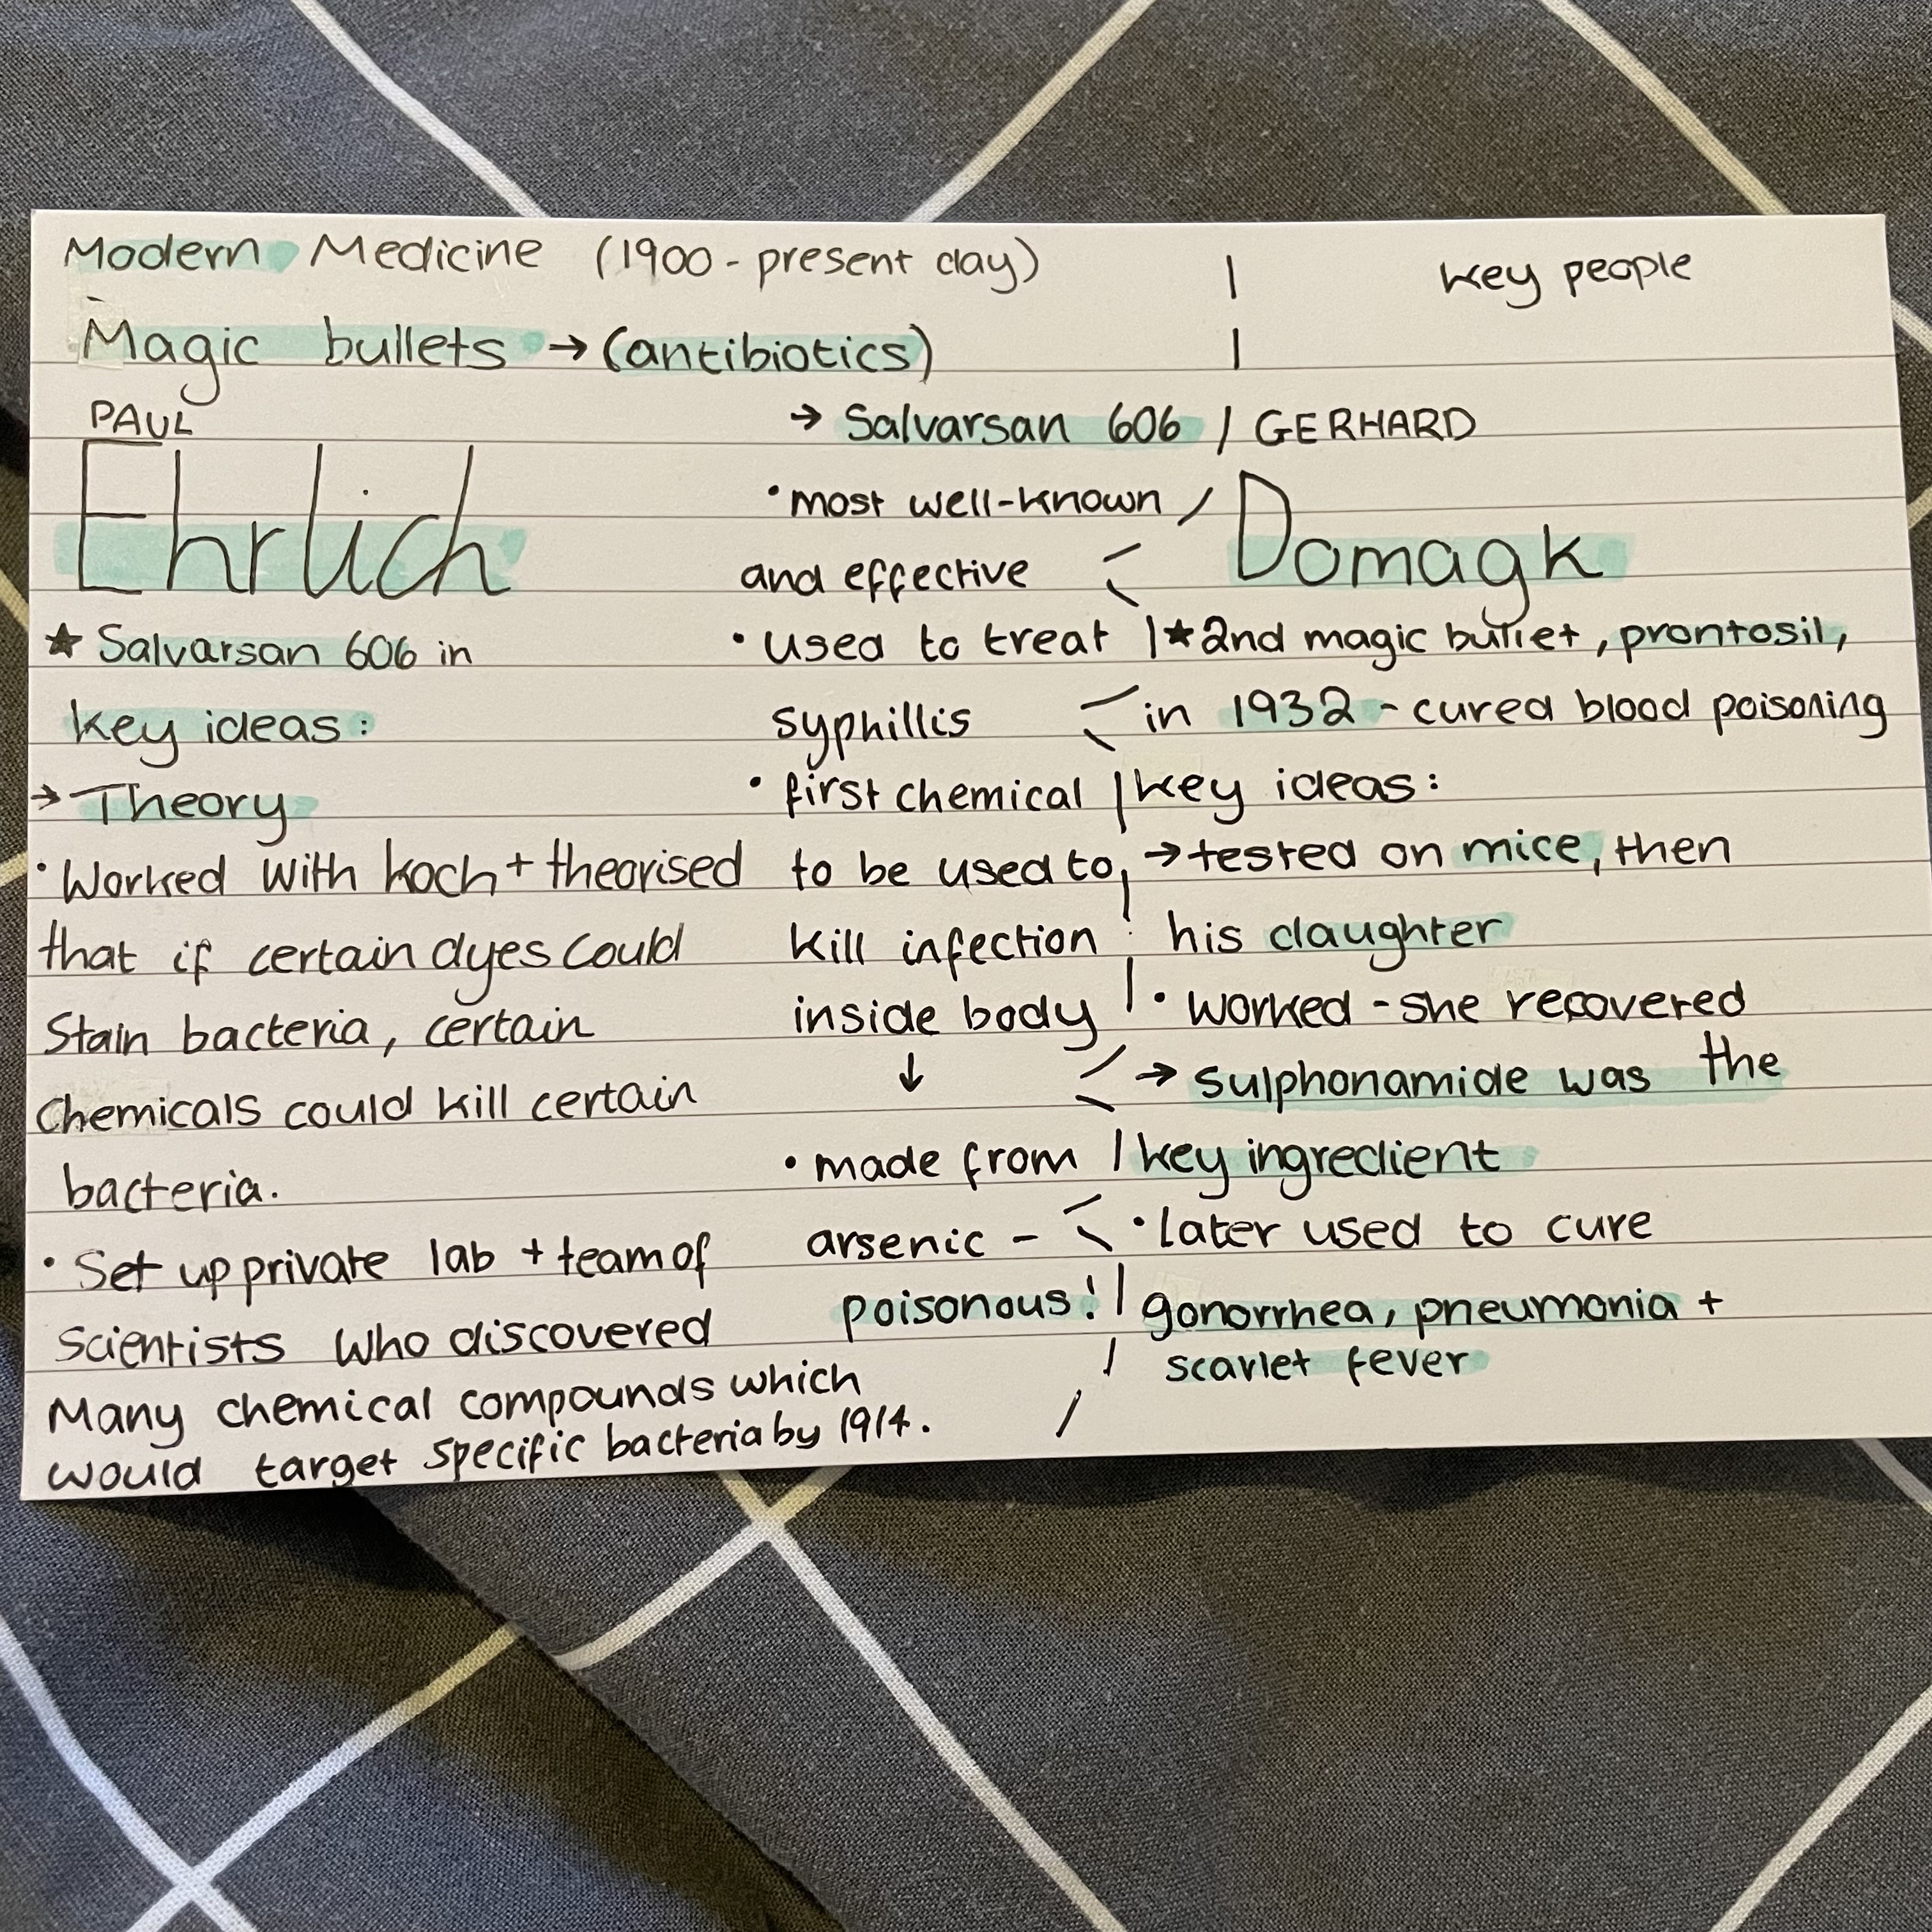 Modern Medicine (1900 - present day)
Key people
Magic bullets → (antibiotics)
PAUL
Ehrlich
★ Salvarsan 606 in
key ideas:
→ Theory
• Worked with koch + theorised
that if certain dyes could
stain bacteria, certain
chemicals could kill certain
bacteria.
• Set up private lab + team of
scientists who discovered
Many chemical compounds which
would target specific bacteria by 1914.
→ Salvarsan 606
• most well-known
and effective
• used to treat
syphillis
• first chemical
to be used to
kill infection
inside body
↓
• made from
arsenic -
poisonous!
GERHARD
Domagk
★ 2nd magic bullet, prontosil,
in 1932 - cured blood poisoning
key ideas:
→ tested on mice, then
his daughter
• worked - she recovered
→ sulphonamide was the
key ingredient
• later used to cure
gonorrhea, pneumonia +
scarlet fever